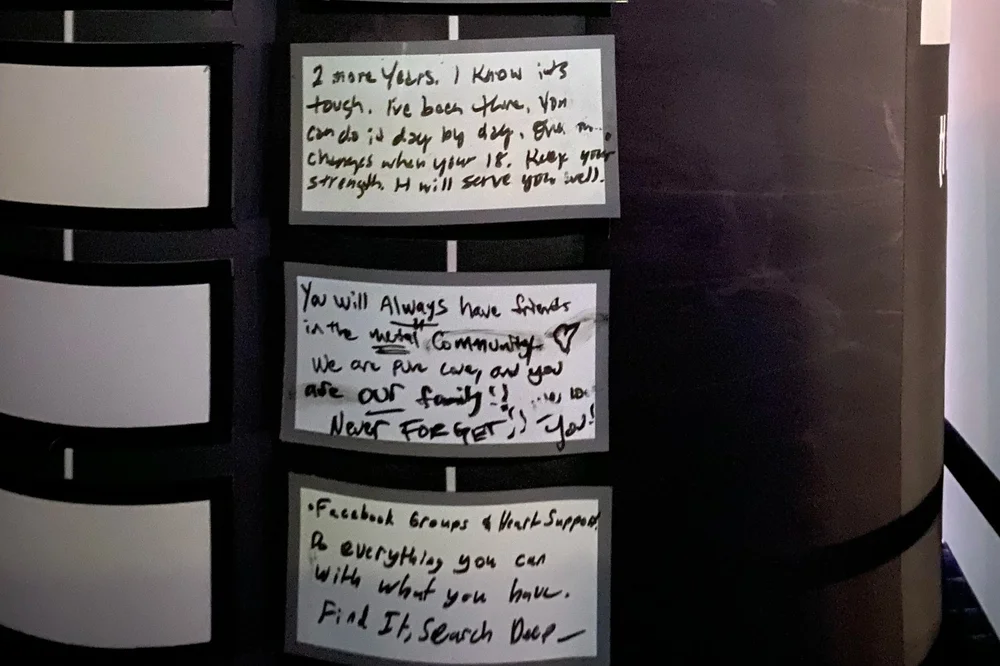 2 more years. I know it's
tough. I've been there. You
can do it day by day.
changes when your 18. Keep your
strength. It will serve you well.
You will Always have friends
in the metal Community ♡
We are pure love, and you
are our family!!
Never FORGET!! You!
•Facebook Groups & Heart Support
Do everything you can
with what you have.
Find It, Search Deep—